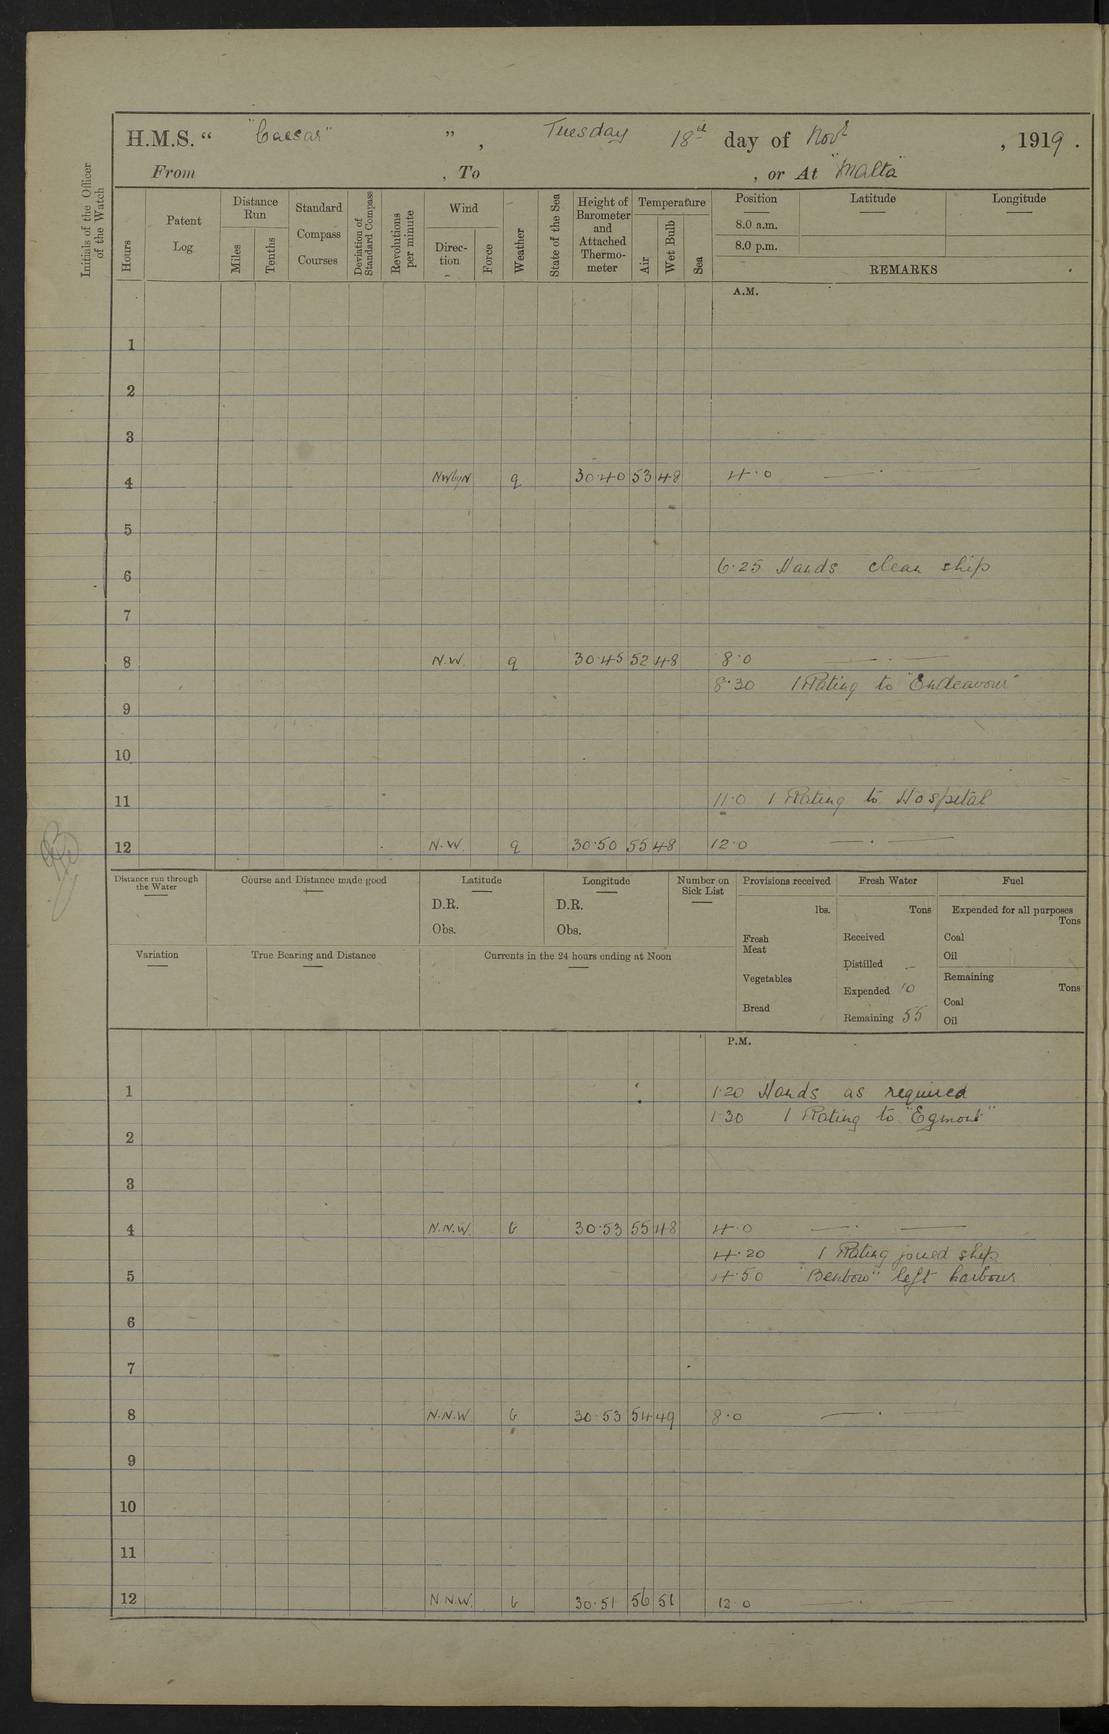 H.M.S. “ "Caesar" ” , Tuesday 18th day of Novr , 1919 .
From , To , or At "Malta"
Initials of the Officer of the Watch
Hours
Patent Log
Distance Run
Miles
Tenths
Standard Compass Courses
Deviation of Standard Compass
Revolutions per minute
Wind
Direc- tion
Force
Weather
State of the Sea
Height of Barometer and Attached Thermo- meter
Temperature
Air
Wet Bulb
Sea
Position Latitude Longitude
8.0 a.m.
8.0 p.m.
REMARKS
A.M.
1
2
3
4 NWbyN q 30.40 53 48 4.0 — . —
5
6 6.25 Hands clean ship
7
8 N.W. q 30.45 52 48 8.0 — . —
8.30 1 Rating to "Endeavour"
9
10
11 11.0 1 Rating to Hospital
12 N.W. q 30.50 55 48 12.0 — . —
Distance run through the Water
Course and Distance made good
Latitude
D.R.
Obs.
Longitude
D.R.
Obs.
Number on Sick List
Provisions received
lbs.
Fresh Meat
Vegetables
Bread
Fresh Water
Tons
Received
Distilled —
Expended 10
Remaining 55
Fuel
Expended for all purposes
Tons
Coal
Oil
Remaining
Tons
Coal
Oil
Variation
True Bearing and Distance
Currents in the 24 hours ending at Noon
P.M.
1 1.20 Hands as required
1.30 1 Rating to "Egmont"
2
3
4 N.N.W. b 30.53 55 48 4.0 — . —
4.20 1 Rating joined ship
5 4.50 "Benbow" left harbour
6
7
8 N.N.W. b 30.53 54 49 8.0 — . —
9
10
11
12 N.N.W. b 30.51 56 51 12.0 — . —